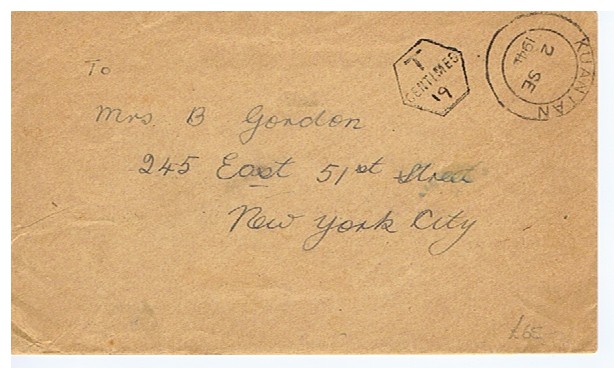 To
Mrs B Gordon
245 East 51st Street
New York City
T
CENTIMES
19
KUANTAN
2 SE
194
£65